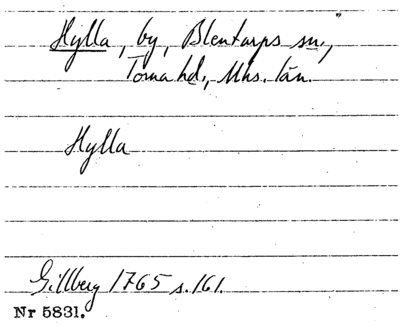 Hylla, by, Blentarps sn.,
Torna hd., Mhs. län.
Hylla
Gillberg 1765 s. 161.
Nr 5831.